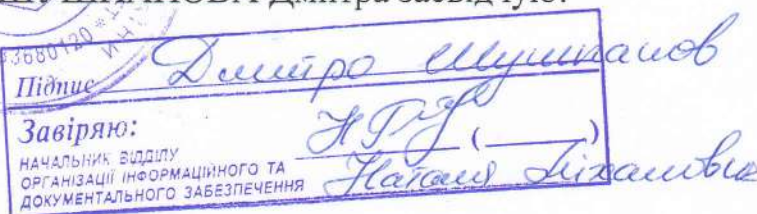 Дмитра засвідчую:
33680120 *
Підпис Дмитро Шушпанов
Завіряю:
НАЧАЛЬНИК ВІДДІЛУ ( )
ОРГАНІЗАЦІЇ ІНФОРМАЦІЙНОГО ТА
ДОКУМЕНТАЛЬНОГО ЗАБЕЗПЕЧЕННЯ Наталя